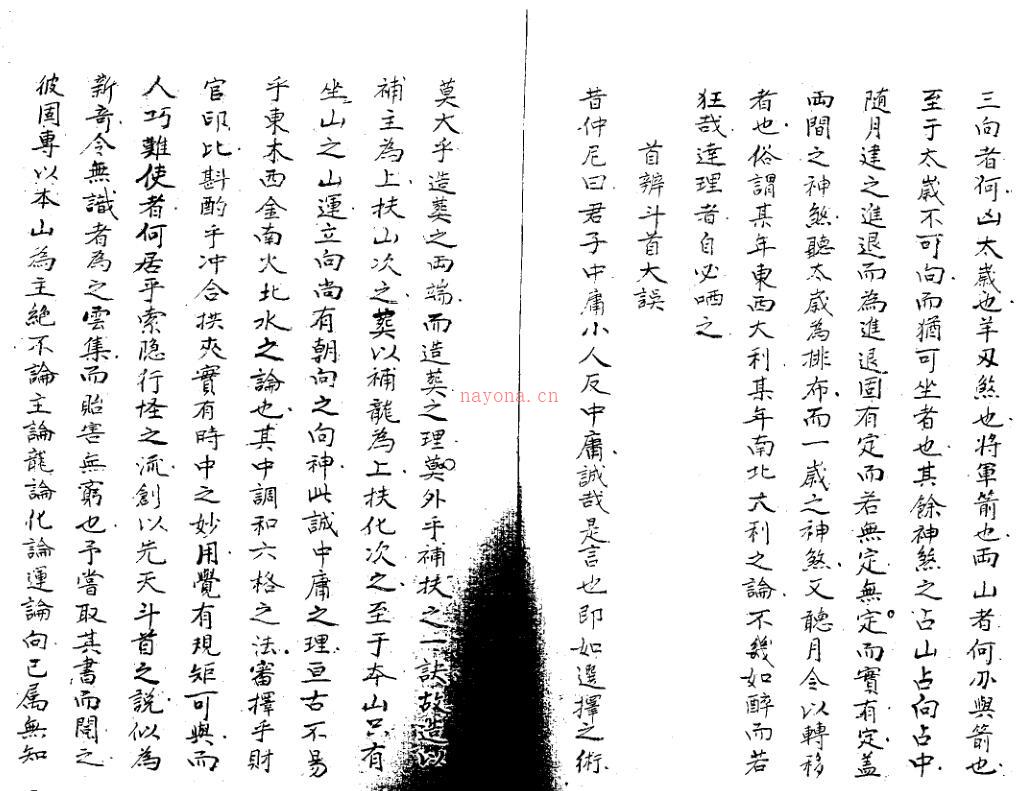 三向者何凶太歲也羊刃煞也將軍箭也両山者何刃與箭也
至于太歲不可向而猶可坐者也其餘神煞之占山占向占中
隨月建之進退而為進退固有定而若無定無定而實有定蓋
両間之神煞聽太歲為排布而一歲之神煞又聽月令以轉移
者也俗謂某年東西大利某年南北大利之論不幾如醉而若
狂哉達理者自必哂之
首辨斗首大誤
昔仲尼曰君子中庸小人反中庸誠哉是言也即如選擇之術
莫大乎造葬之両端而造葬之理莫外乎補扶之一訣故造以
補主為上扶山次之葬以補龍為上扶化次之至于本山只有
坐山之山運立向尚有朝向之向神此誠中庸之理亘古不易
乎東木西金南火北水之論也其中調和六格之法審擇乎財
官印比斟酌乎冲合拱夾實有時中之妙用覺有規矩可與而
人巧難使者何居乎索隐行怪之流創以先天斗首之説似為
新奇令無識者為之雲集而貽害無窮也予嘗取其書而閱之
彼固專以本山為主絕不論主論龍論化論運論向已属無知
nayona.cn